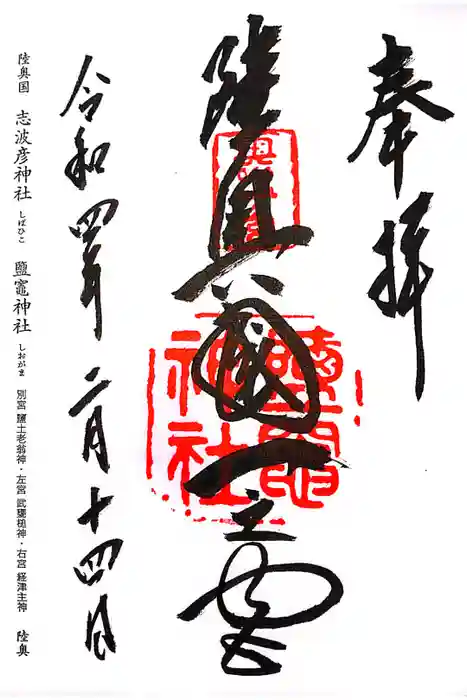 奉拝
陸奥國一之宮
奥
鹽竈
神社
令和四年二月十四日
陸奥国 志波彦神社 しばひこ 鹽竈神社 しおがま 別宮 鹽土老翁神・左宮 武甕槌神・右宮 経津主神 陸奥